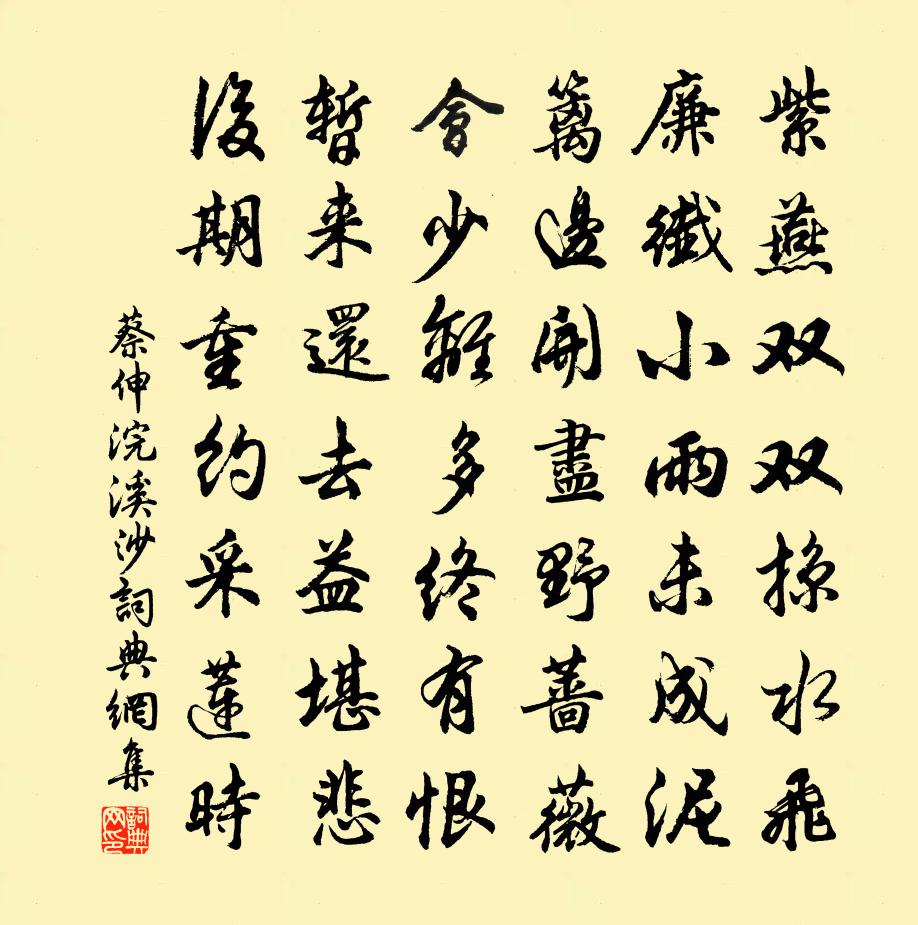 紫燕双双掠水飛
廉纖小雨未成泥
篱邊開盡野薔薇
會少離多終有恨
暫来還去益堪悲
後期重约采蓮時
蔡伸浣溪沙詞典網集
詞典网印